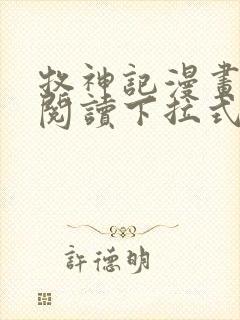 牧神記漫畫
閱讀下拉式
許德明